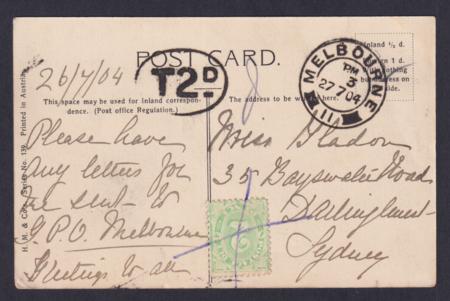 POST CARD.
Inland ½ d.
1 d.
nothing
address on
side.
26/7/04
T2D
MELBOURNE
PM
3
27 7 04
This space may be used for Inland correspon-
dence. (Post office Regulation.)
The address to be
here.
H. M. & Co. Series No. 139. Printed in Austria
Please have
any letters for
me sent to
G.P.O. Melbourne
Greetings to all
Miss Gladon
35 Bayswater Road
Darlinghurst
Sydney